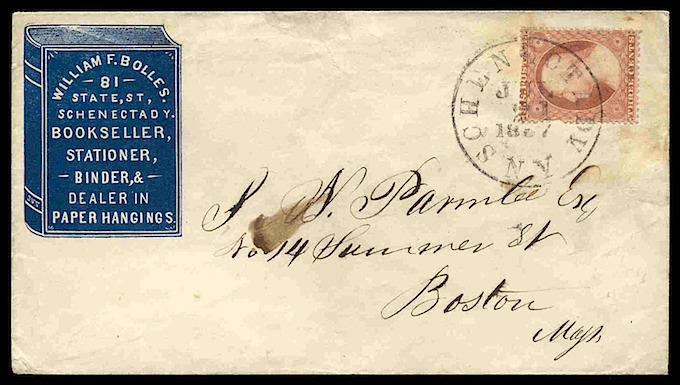 WILLIAM F. BOLLES.
81
STATE, ST,
SCHENECTADY.
BOOKSELLER,
STATIONER,
BINDER, &
DEALER IN
PAPER HANGINGS.
SCHENECTADY N.Y.
1857
N. Parmlee Esq
No. 14 Summer St
Boston
Mass